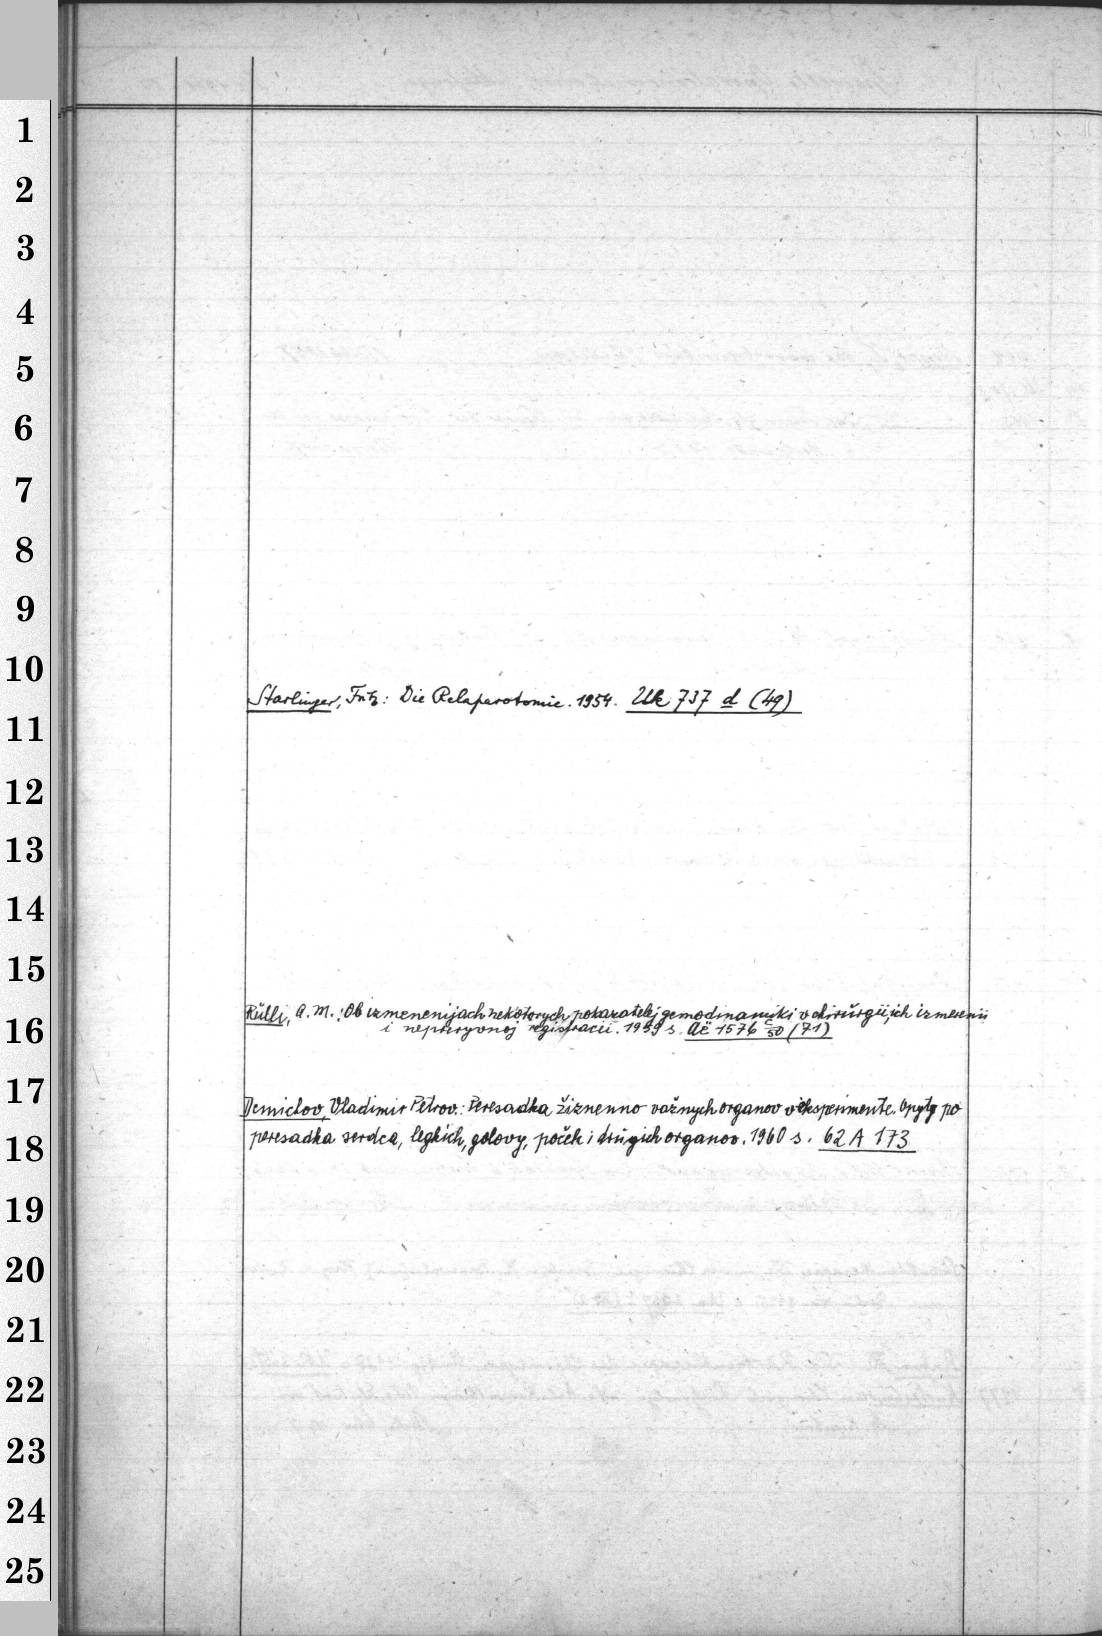 1
2
3
4
5
6
7
8
9
10
Starlinger, Fritz: Die Relaparotomie. 1954. Uk 737 d (49)
11
12
13
14
15
Rülli, A. M.: Ob izmenenijach nekotorych pokazatelej gemodinamiki v chirurgii, ich izmerenii
16
i nepreryvnoj registracii. 1959 s. Aë 1576 c/50 (71)
17
Demichov, Vladimir Petrov.: Peresadka žiznenno važnych organov v eksperimente. Opyty po
18
peresadka serdca, legkich, golovy, poček i drugich organov. 1960 s. 62 A 173
19
20
21
22
23
24
25